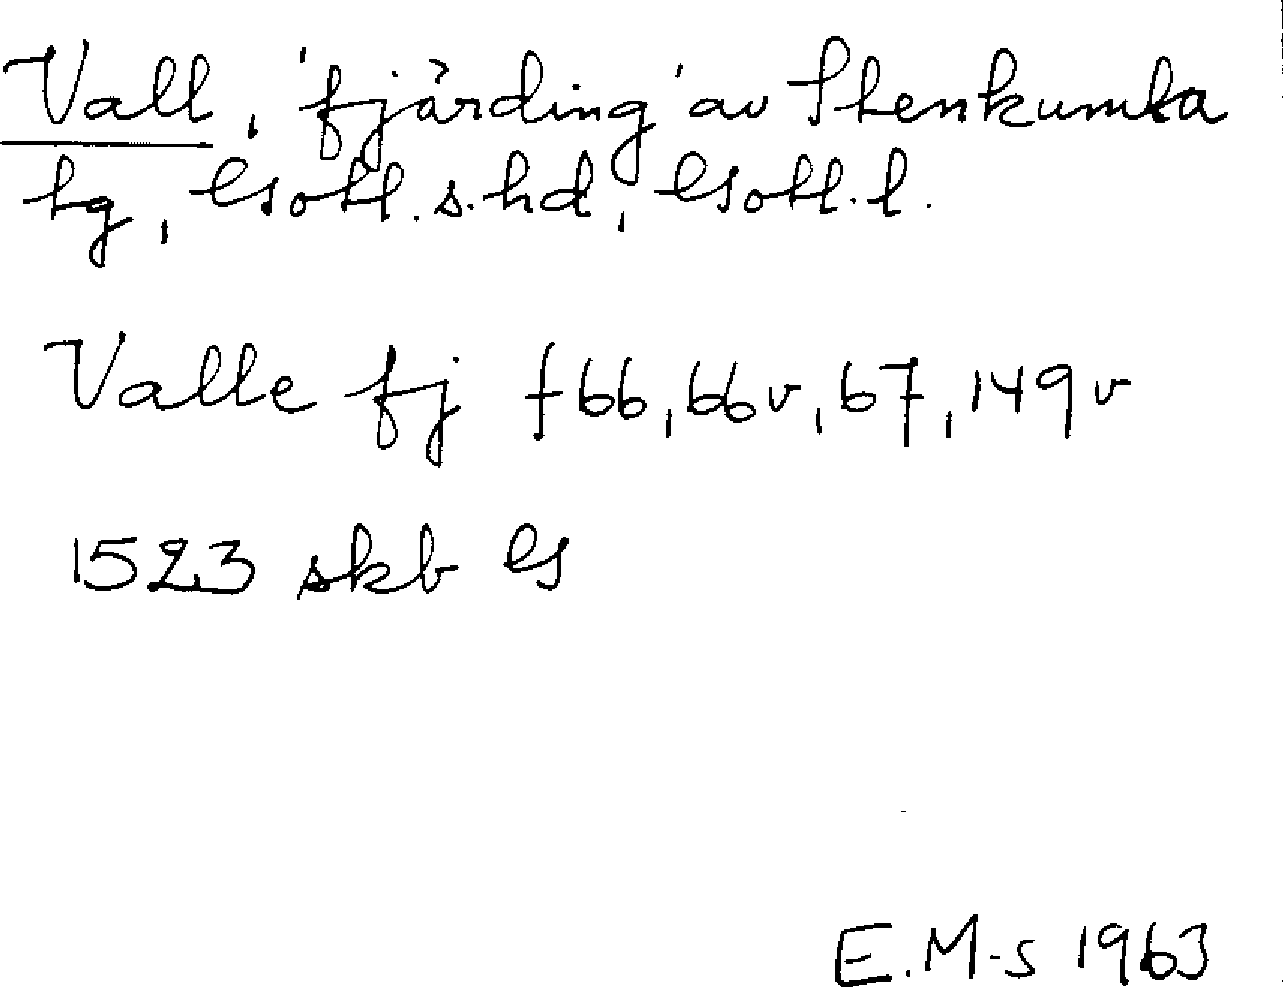 Vall, 'fjärding' av Stenkumla
tg, Gotl. s. hd, Gotl. l.
Valle fj f 66, 66v, 67, 149v
1523 skb G
E. M-s 1963